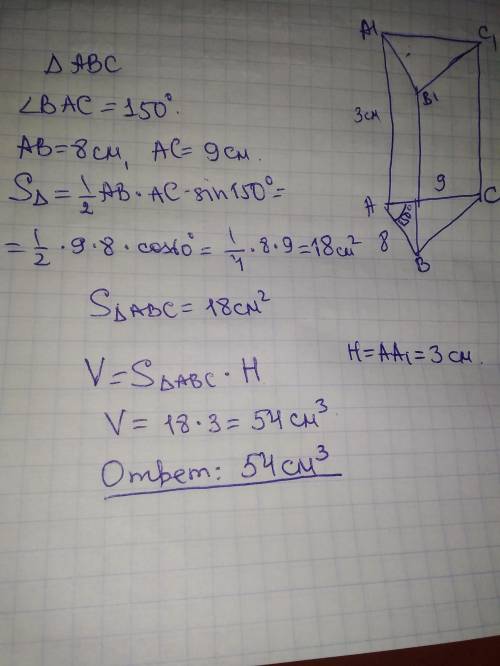 Δ ABC
∠BAC = 150°.
AB = 8 см, AC = 9 см.
S△ = 1/2 AB · AC · sin150° =
= 1/2 · 9 · 8 · cos60° = 1/4 · 8 · 9 = 18 см²
S△ABC = 18 см²
V = S△ABC · H
V = 18 · 3 = 54 см³
Ответ: 54 см³
A1
C1
B1
3 см
9
A
C
150°
8
B
H = AA₁ = 3 см.